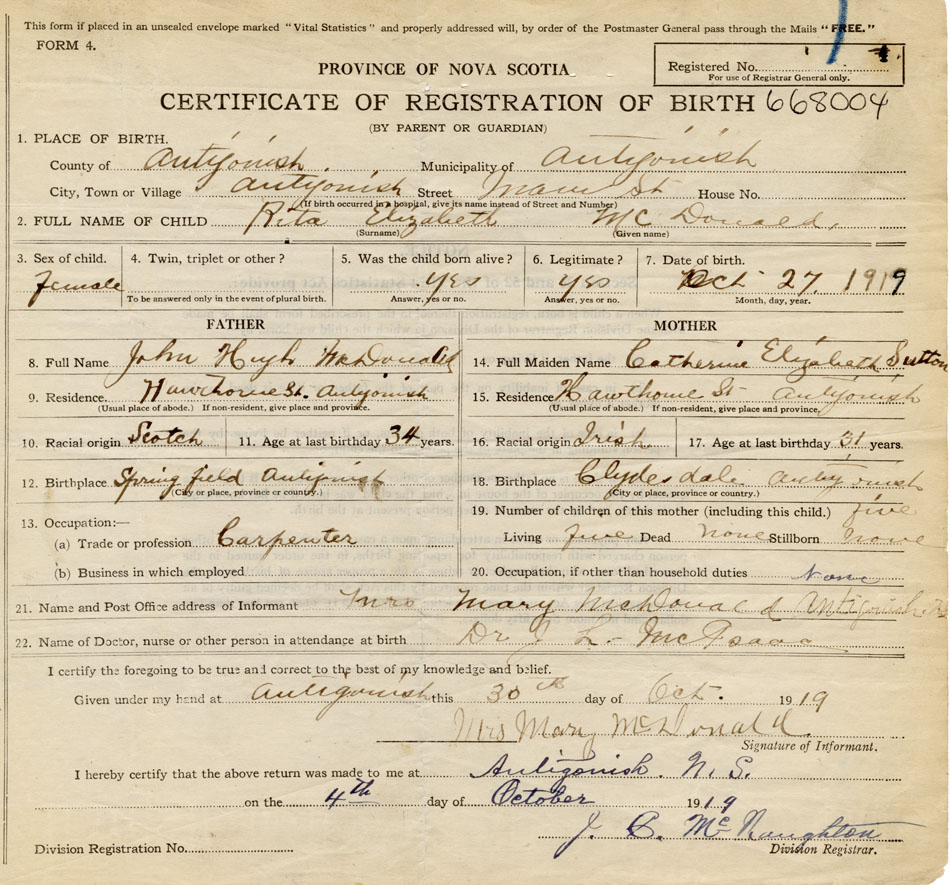 This form if placed in an unsealed envelope marked "Vital Statistics" and properly addressed will, by order of the Postmaster General pass through the Mails "FREE."
FORM 4.
Registered No.
For use of Registrar General only.
PROVINCE OF NOVA SCOTIA
CERTIFICATE OF REGISTRATION OF BIRTH 668004
(BY PARENT OR GUARDIAN)
1. PLACE OF BIRTH.
County of Antigonish Municipality of Antigonish
City, Town or Village Antigonish Street Main St House No.
(If birth occurred in a hospital, give its name instead of Street and Number)
2. FULL NAME OF CHILD Rita Elizabeth McDonald
(Surname) (Given name)
3. Sex of child. 4. Twin, triplet or other? 5. Was the child born alive? 6. Legitimate? 7. Date of birth.
Female Yes Yes Oct 27, 1919
To be answered only in the event of plural birth. Answer, yes or no. Answer, yes or no. Month, day, year.
FATHER MOTHER
8. Full Name John Hugh McDonald 14. Full Maiden Name Catherine Elizabeth Sutton
9. Residence. Hawthorne St. Antigonish 15. Residence Hawthorne St Antigonish
(Usual place of abode.) If non-resident, give place and province. (Usual place of abode.) If non-resident, give place and province.
10. Racial origin Scotch 11. Age at last birthday 34 years. 16. Racial origin Irish 17. Age at last birthday 31 years.
12. Birthplace Springfield Antigonish 18. Birthplace Clydesdale Antigonish
(City or place, province or country.) (City or place, province or country.)
13. Occupation:— 19. Number of children of this mother (including this child.) five
(a) Trade or profession Carpenter Living five Dead None Stillborn None
(b) Business in which employed 20. Occupation, if other than household duties None
21. Name and Post Office address of Informant Mrs Mary McDonald Antigonish
22. Name of Doctor, nurse or other person in attendance at birth Dr. J L. McIsaac
I certify the foregoing to be true and correct to the best of my knowledge and belief.
Given under my hand at Antigonish this 30th day of Oct. 1919
Mrs Mary McDonald
Signature of Informant.
I hereby certify that the above return was made to me at Antigonish. N. S.
on the 4th day of October 1919
J. B. McNaughton
Division Registration No. Division Registrar.